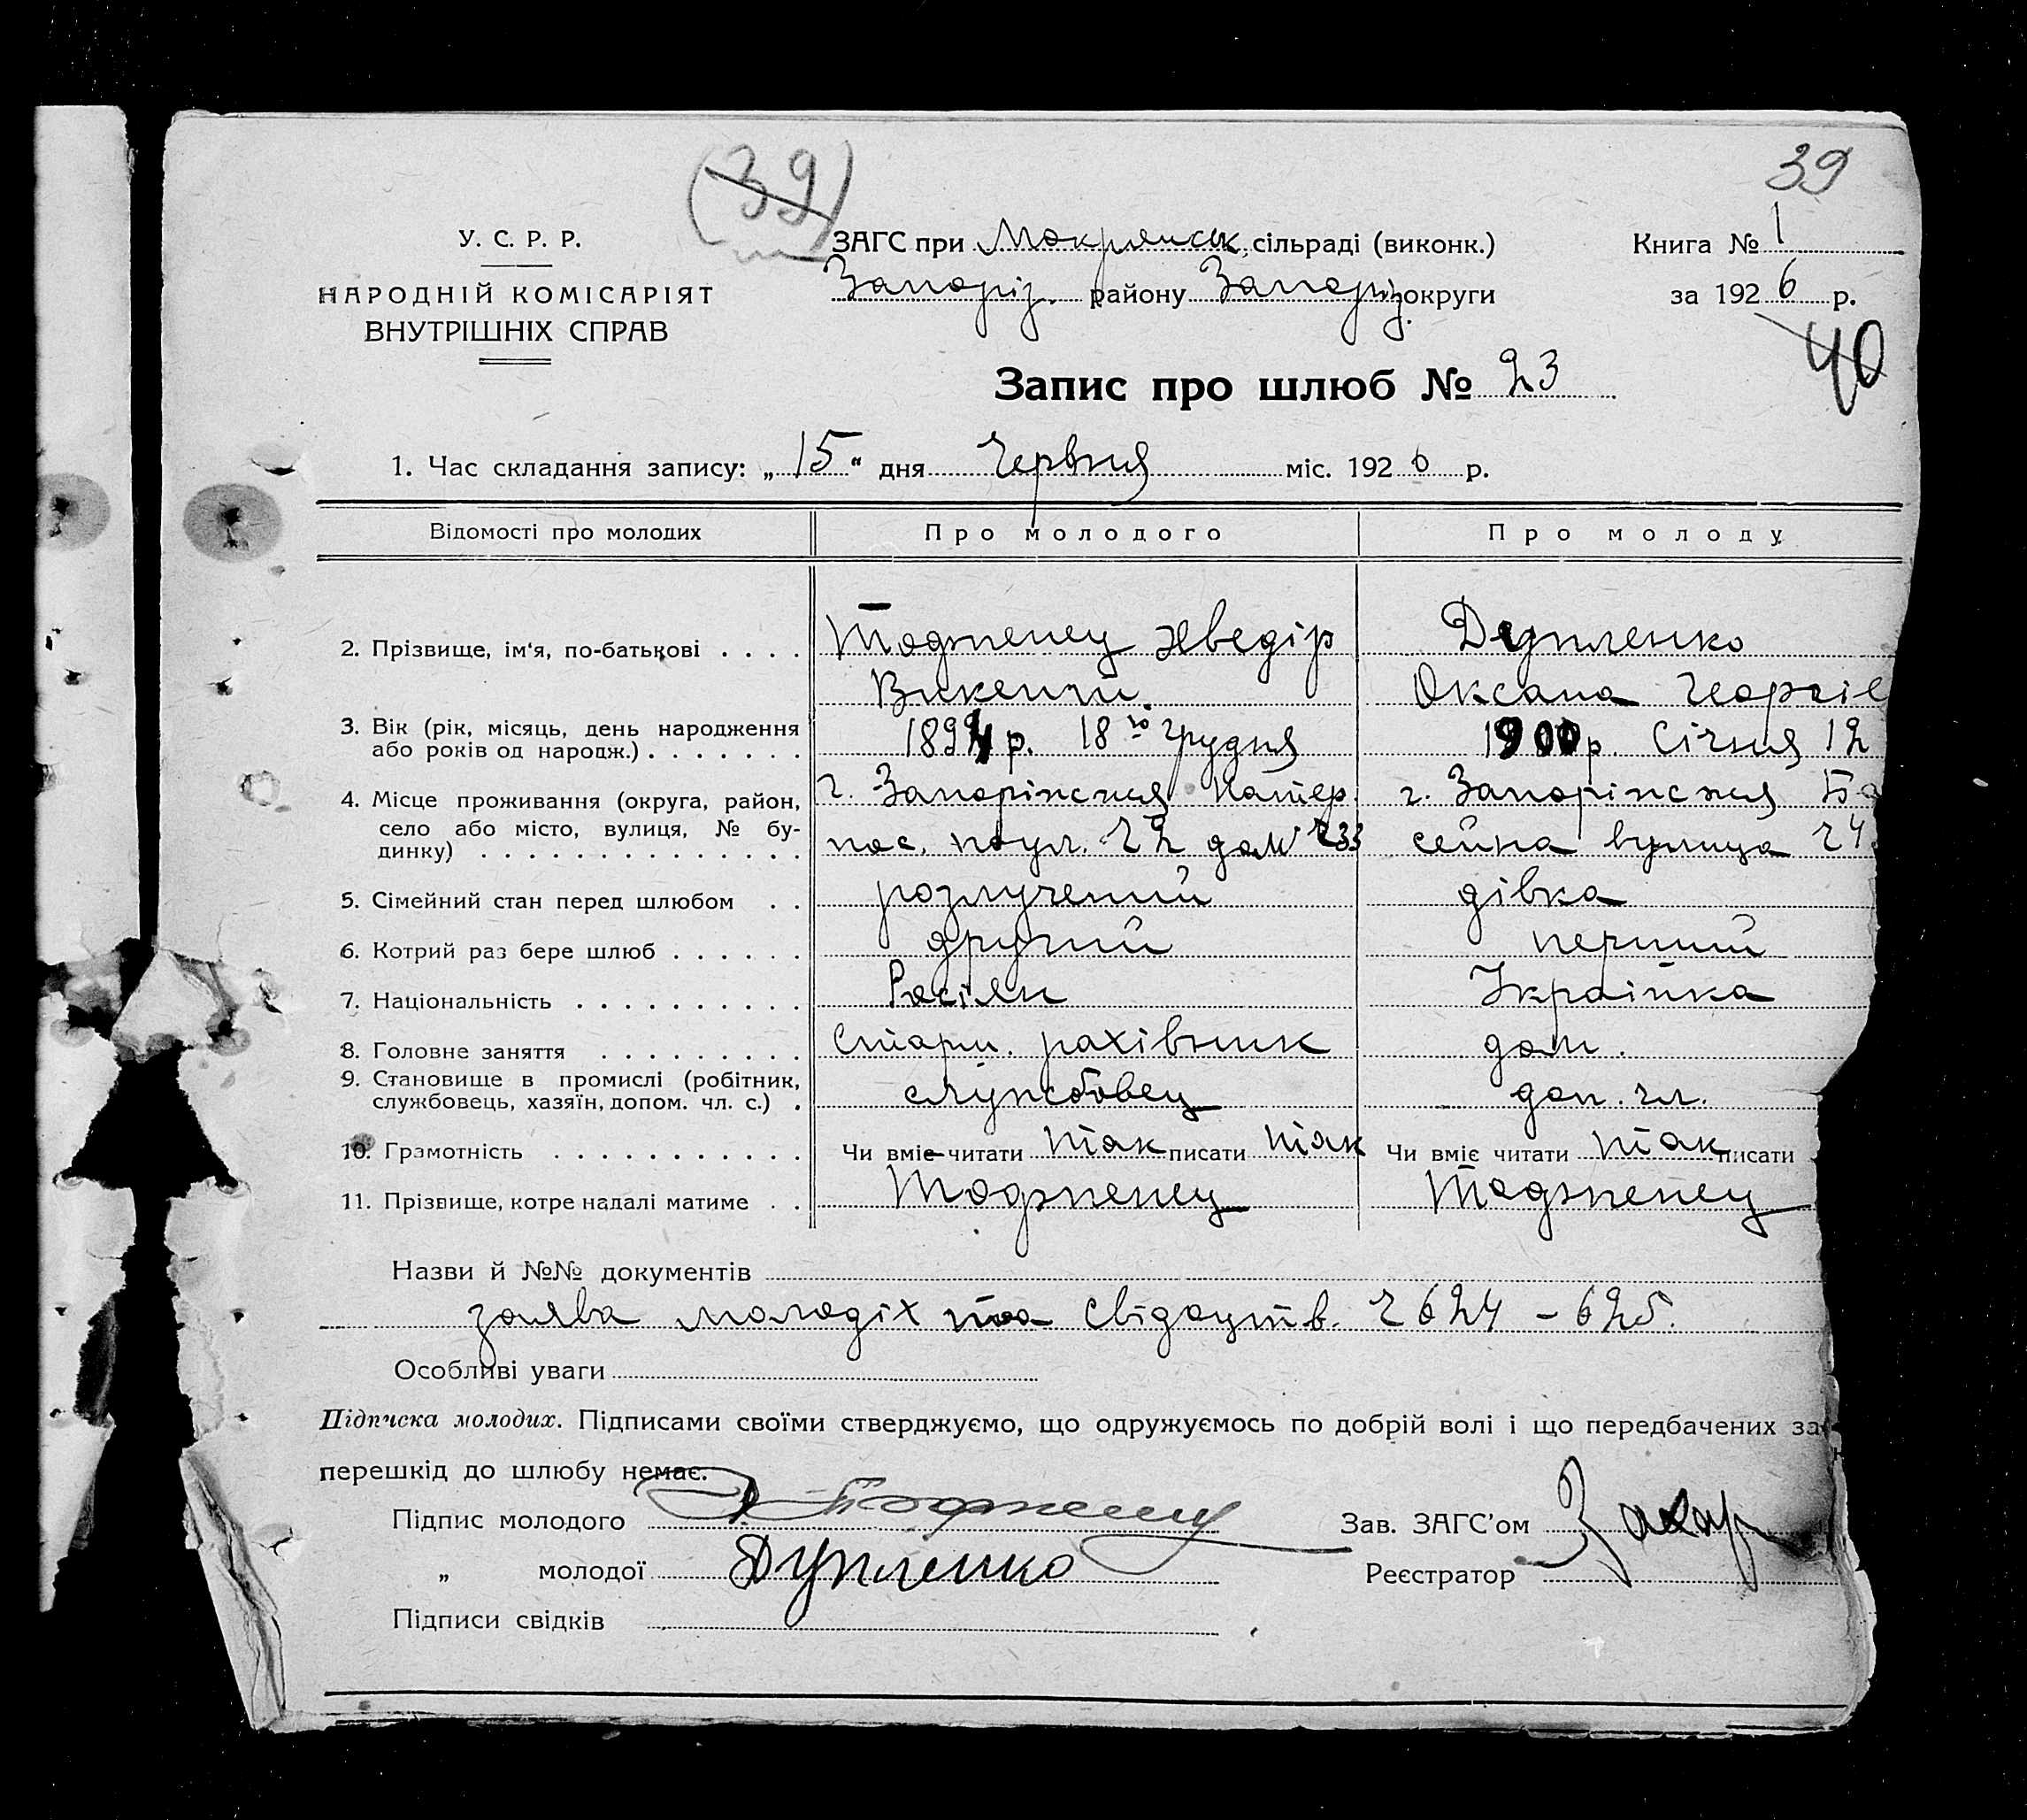 39
(39)
У. С. Р. Р.
НАРОДНІЙ КОМІСАРІЯТ
ВНУТРІШНІХ СПРАВ
ЗАГС при Мокрянськ. сільраді (виконк.)
Запоріз. району Запоріз. округи
Книга № 1
за 1926 р.
40
Запис про шлюб № 23
1. Час складання запису: „15“ дня Червня міс. 1926 р.
Відомості про молодих Про молодого Про молоду
2. Прізвище, ім'я, по-батькові . . . . Тоджпенец Хведір Дупленко
Викентій. Оксана Георгіє
3. Вік (рік, місяць, день народження
або років од народж.) . . . . . . . 1894 р. 18го Грудня 1900 р. Січня 12
4. Місце проживання (округа, район,
село або місто, вулиця, № бу-
динку) . . . . . . . . . . . . . . г. Запоріжжя г. Запоріжжя Ба
пос. по ул. Ч 2 дом Ч 33 сейна вулиця Ч 4
5. Сімейний стан перед шлюбом . . розлучений дівка
6. Котрий раз бере шлюб . . . . . . другий перший
7. Національність . . . . . . . . . . Росіян Українка
8. Головне заняття . . . . . . . . . Старш. рахівник дом.
9. Становище в промислі (робітник,
службовець, хазяїн, допом. чл. с.) . службовец доп. чл.
10. Грамотність . . . . . . . . . . . Чи вміє читати так писати так Чи вміє читати так писати
11. Прізвище, котре надалі матиме . .
Назви й №№ документів
заява молодіх та свідоцтв. Ч 624 – 625.
Особливі уваги
Підписка молодих. Підписами своїми стверджуємо, що одружуємось по добрій волі і що передбачених за
перешкід до шлюбу немає.
Підпис молодого
Зав. ЗАГС'ом Захар
„ молодої Дупленко
Реєстратор
Підписи свідків